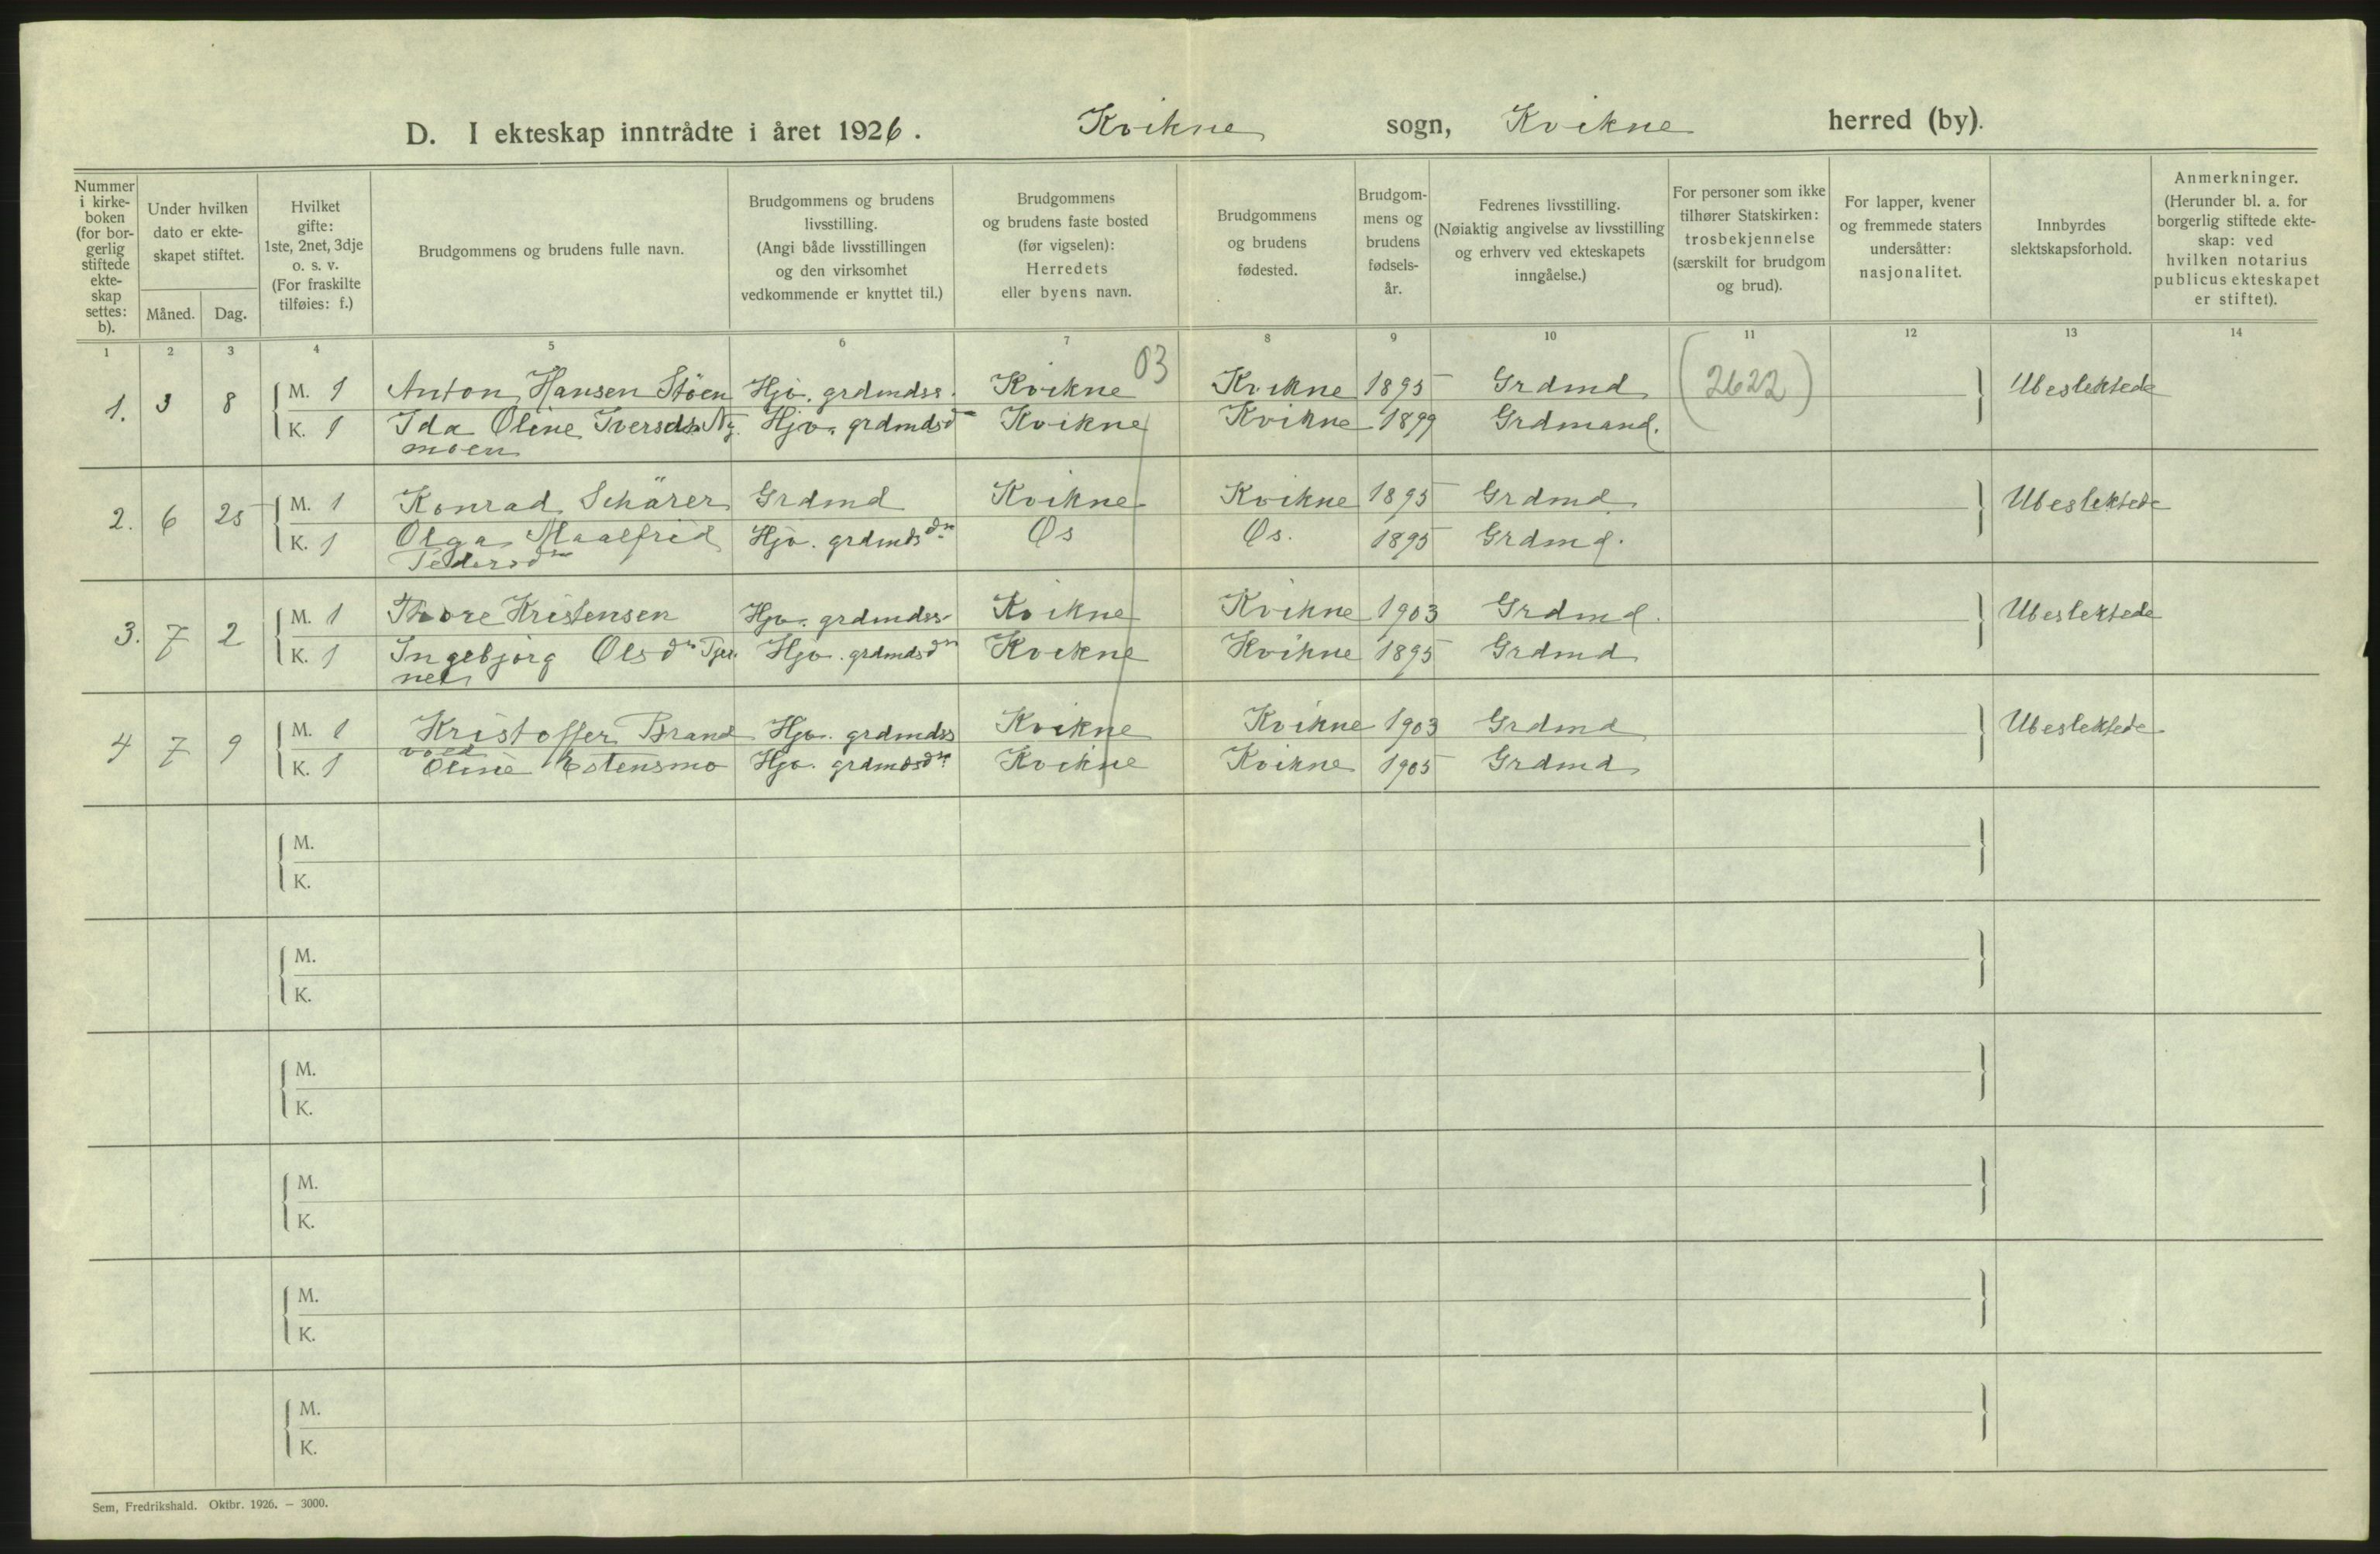 D. I ekteskap inntrådte i året 1926. Kvikne sogn, Kvikne herred (by).
Nummer
i kirke-
boken
(for bor-
gerlig
stiftede
ekte-
skap
settes:
b).
Under hvilken
dato er ekte-
skapet stiftet.
Måned. Dag.
Hvilket
gifte:
1ste, 2net, 3dje
o. s. v.
(For fraskilte
tilføies: f.)
Brudgommens og brudens fulle navn.
Brudgommens og brudens
livsstilling.
(Angi både livsstillingen
og den virksomhet
vedkommende er knyttet til.)
Brudgommens
og brudens faste bosted
(før vigselen):
Herredets
eller byens navn.
Brudgommens
og brudens
fødested.
Brudgom-
mens og
brudens
fødsels-
år.
Fedrenes livsstilling.
(Nøiaktig angivelse av livsstilling
og erhverv ved ekteskapets
inngåelse.)
For personer som ikke
tilhører Statskirken:
trosbekjennelse
(særskilt for brudgom
og brud).
For lapper, kvener
og fremmede staters
undersåtter:
nasjonalitet.
Innbyrdes
slektskapsforhold.
Anmerkninger.
(Herunder bl. a. for
borgerlig stiftede ekte-
skap: ved
hvilken notarius
publicus ekteskapet
er stiftet).
1 2 3 4 5 6 7 8 9 10 11 12 13 14
03
1. 3 8 M. 1 Anton Hansen Stöen Hjv. grdmdss. Kvikne Kvikne 1895 Grdmd (2622) Ubeslektede
K. 1 Ida Oline Iversdtr Ny- Hjv. grdmdsdtr Kvikne Kvikne 1899 Grdmand.
moen
2. 6 25 M. 1 Konrad Schärer Grdmd Kvikne Kvikne 1895 Grdmd. Ubeslektede
K. 1 Olga Maalfrid Hjv. grdmdsdtr Os Os. 1895 Grdmd.
Pedersdtr
3. 7 2 M. 1 Thore Kristensen Hjv. grdmdss. Kvikne Kvikne 1903 Grdmd. Ubeslektede
K. 1 Ingebjörg Olsdtr Tjer- Hjv. grdmdsdtr Kvikne Kvikne 1895 Grdmd
net
4 7 9 M. 1 Kristoffer Brand Hjv. grdmdss Kvikne Kvikne 1903 Grdmd Ubeslektede
vold
K. 1 Oline Estensmo Hjv. grdmdsdtr Kvikne Kvikne 1905 Grdmd
M.
K.
M.
K.
M.
K.
M.
K.
M.
K.
M.
K.
Sem, Fredrikshald. Oktbr. 1926. – 3000.